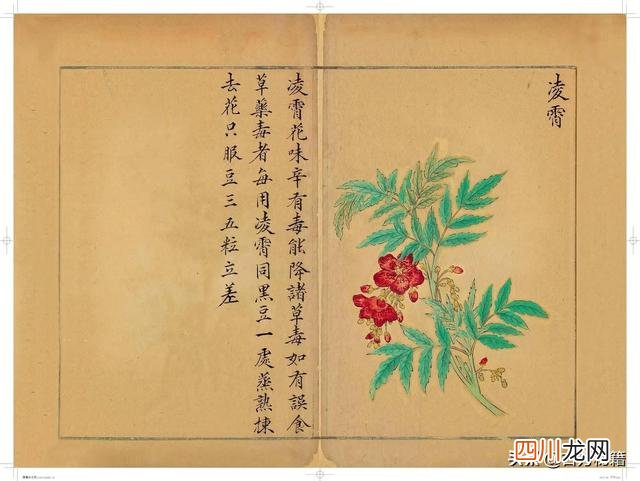 凌霄
凌霄花味辛有毒能降諸草毒如有誤食
草藥毒者每用凌霄同黑豆一處蒸熟揀
去花只服豆三五粒立差
四川龙网